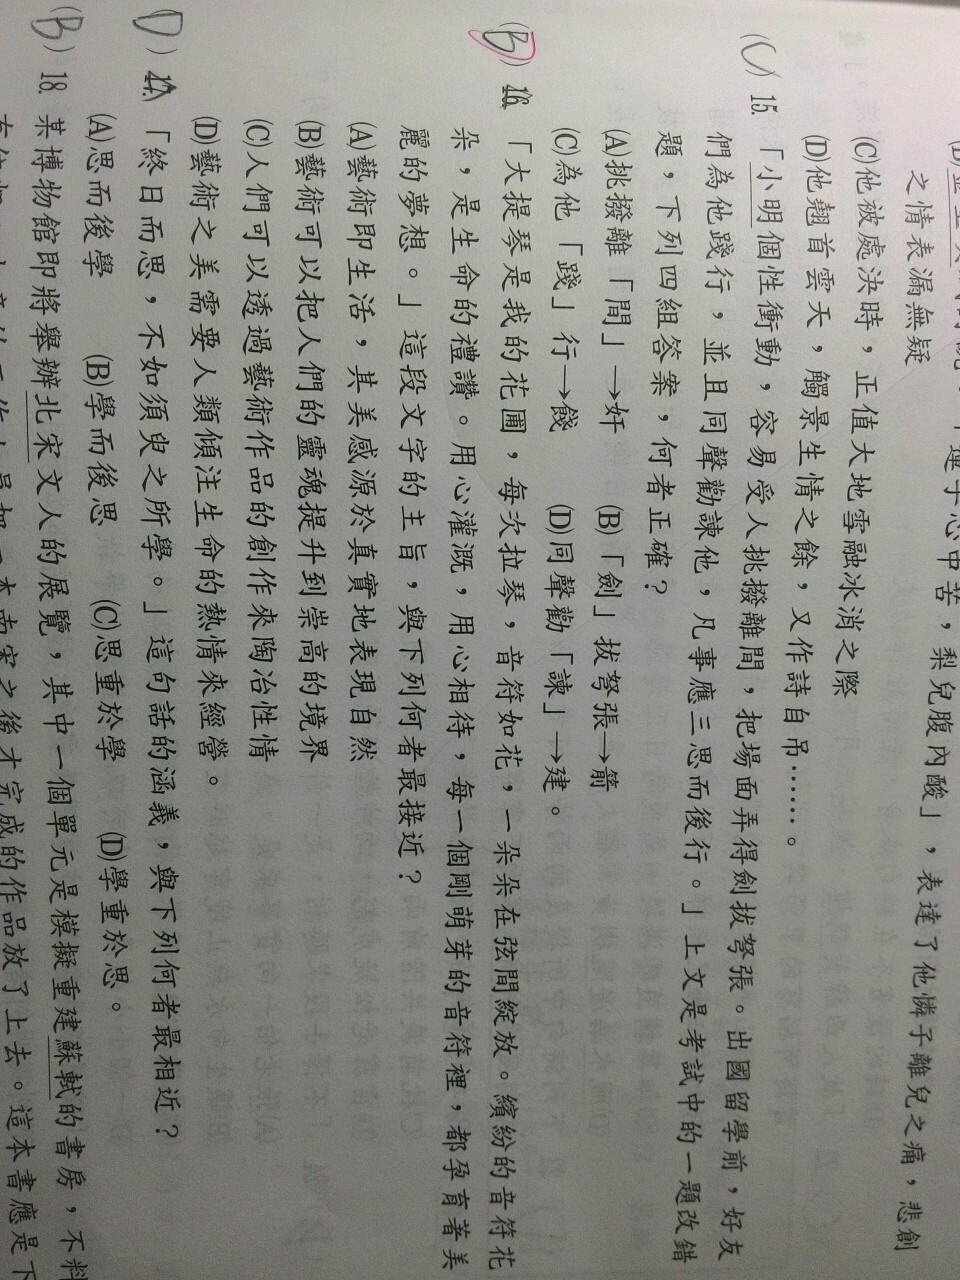 之情表漏無疑
(C)他被處決時，正值大地雪融冰消之際
(D)他翹首雲天，觸景生情之餘，又作詩自吊……。
(C) 15. 「小明個性衝動，容易受人挑撥離間，把場面弄得劍拔弩張。出國留學前，好友
們為他踐行，並且同聲勸諫他，凡事應三思而後行。」上文是考試中的一題改錯
題，下列四組答案，何者正確？
(A)挑撥離「間」→奸 (B)「劍」拔弩張→箭
(C)為他「踐」行→餞 (D)同聲勸「諫」→建。
(B) 16. 「大提琴是我的花圃，每次拉琴，音符如花，一朵朵在弦間綻放。繽紛的音符花
朵，是生命的禮讚。用心灌溉，用心相待，每一個剛萌芽的音符裡，都孕育著美
麗的夢想。」這段文字的主旨，與下列何者最接近？
(A)藝術即生活，其美感源於真實地表現自然
(B)藝術可以把人們的靈魂提升到崇高的境界
(C)人們可以透過藝術作品的創作來陶冶性情
(D)藝術之美需要人類傾注生命的熱情來經營。
(D) 17. 「終日而思，不如須臾之所學。」這句話的涵義，與下列何者最相近？
(A)思而後學 (B)學而後思 (C)思重於學 (D)學重於思。
(B) 18. 某博物館即將舉辦北宋文人的展覽，其中一個單元是模擬重建蘇軾的書房，不料
南宋之後才完成的作品放了上去。這本書應是下